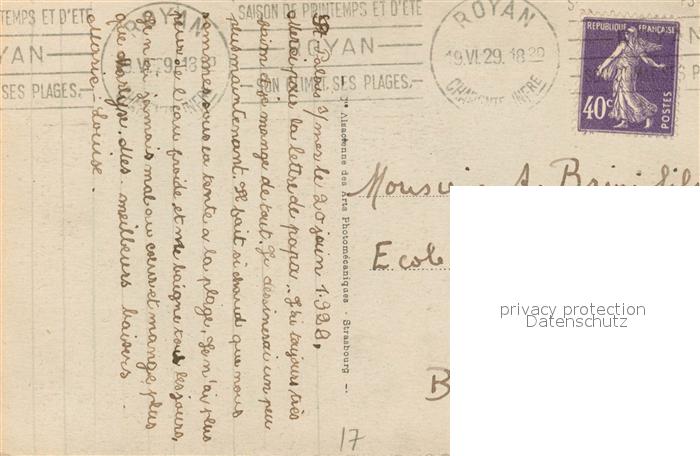 SAISON DE PRINTEMPS ET D'ÉTÉ
ROYAN
SON CLIMAT, SES PLAGES,
ROYAN
19.VI.29. 18 30
CHARENTE INFRE
REPUBLIQUE FRANÇAISE
40c
POSTES
St Palais s/mer le 20 juin 1.928,
Merci pour la lettre de papa. J'ai toujours très
faim et je mange de tout. Je dessinerai un peu
plus maintenant. Il fait si chaud que nous
sommes sous la tente a la plage. Je n'ai plus
peur de l'eau froide et me baigne tous les jours,
Je n'ai jamais mal au cœur et mange plus
que
meilleurs baisers
Marie-Louise.
Alsacienne des Arts Photomécaniques - Strasbourg
Monsieur A.
Ecole
B
17
privacy protection
Datenschutz